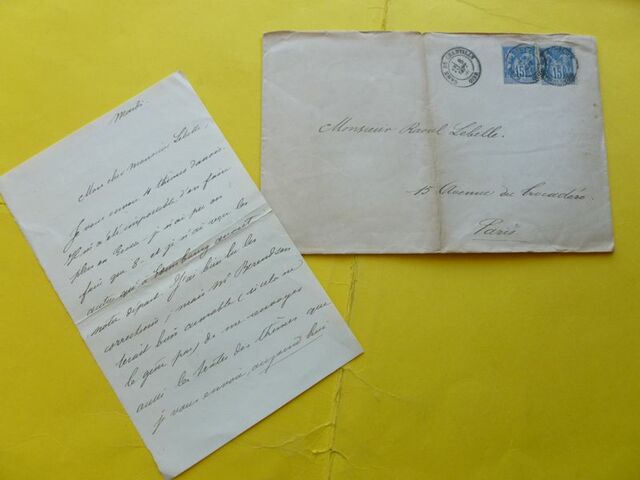 Mardi.
Mon cher monsieur Labelle,
Je vous envoie 4 thèmes d'avoir.
Il m'a été impossible d'en faire
plus en . je n'ai pu en
faire que 3. et j'ai reçu les
autres qu'à avant
notre départ. J'ai bien lu les
corrections, mais Mr
serait bien aimable (si cela ne
le gêne pas) de me renvoyer
aussi les textes des thèmes que
je vous envoie, aujourd'hui
GARE DE
15
15
Monsieur Raoul Labelle.
15 Avenue du Trocadéro.
Paris